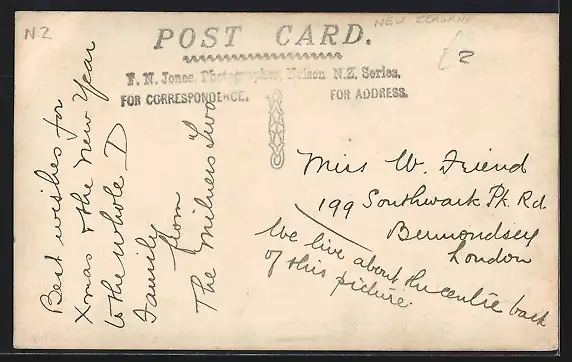 N.Z
NEW ZEALAND.
£2
POST CARD.
F. N. Jones, Photographer, Nelson N.Z. Series.
FOR CORRESPONDENCE.
FOR ADDRESS.
Best wishes for
Xmas & the New Year
to the whole D
Family
from
The Milners Two
Miss W. Friend
199 Southwark Pk. Rd.
Bermondsey
London
We live about the centre back
of this picture.